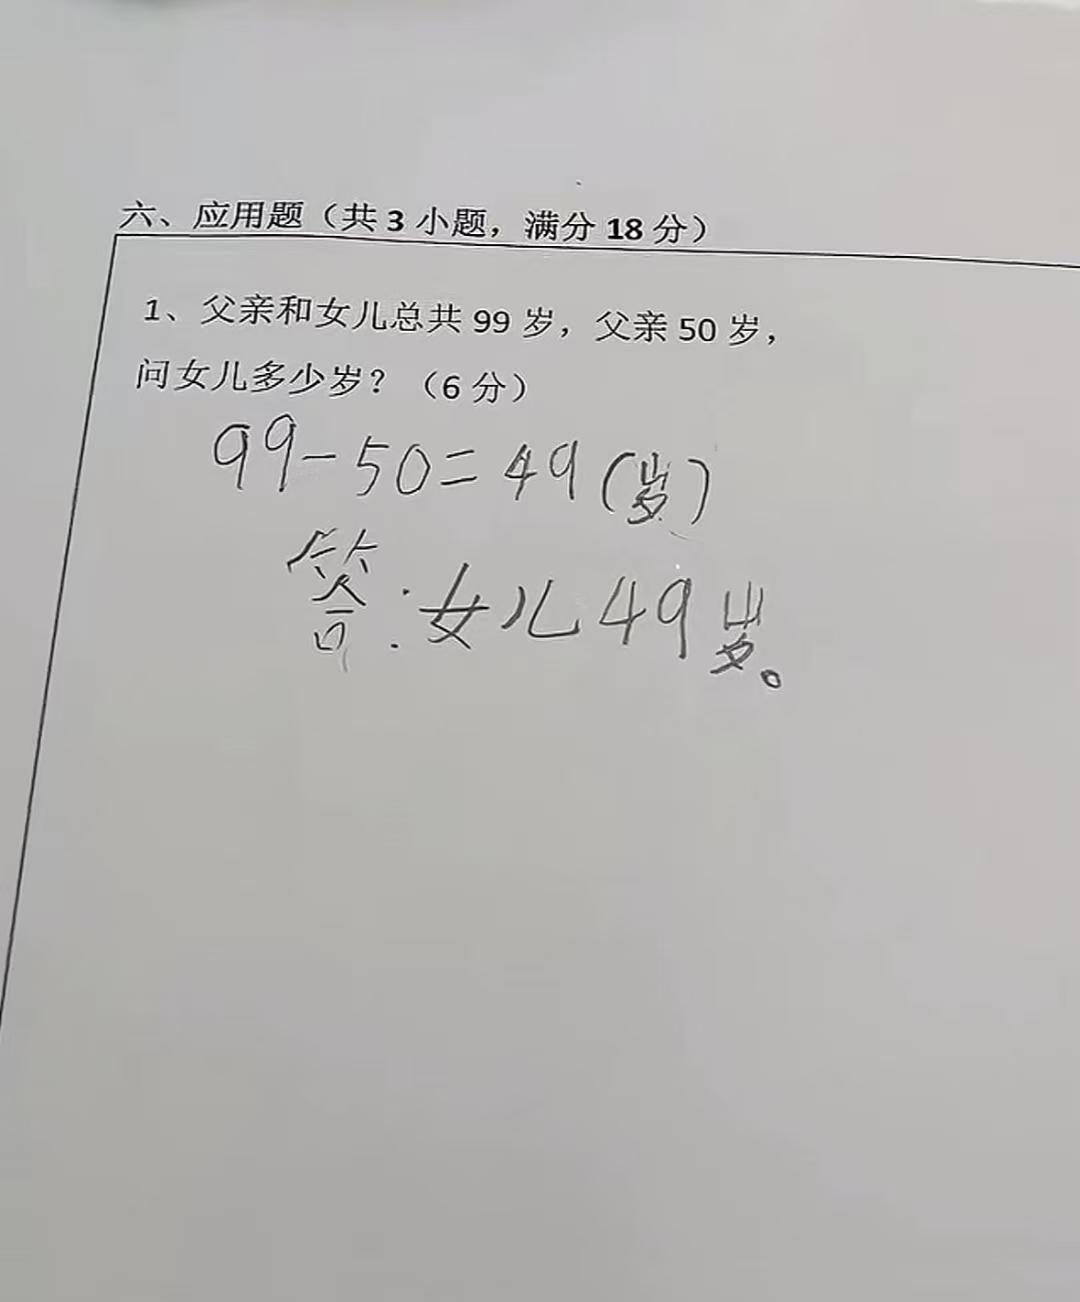 六、应用题（共 3 小题，满分 18 分）
1、父亲和女儿总共 99 岁，父亲 50 岁，
问女儿多少岁？（6 分）
99-50=49(岁)
答:女儿49岁。